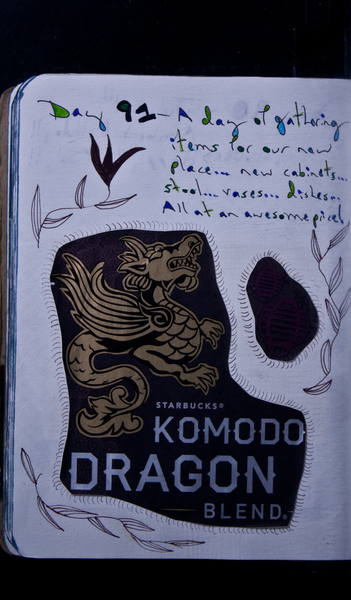 Day 91 - A day of gathering
items for our new
place... new cabinets...
stool... vases... dishes...
All at an awesome price!
STARBUCKS®
KOMODO
DRAGON
BLEND®